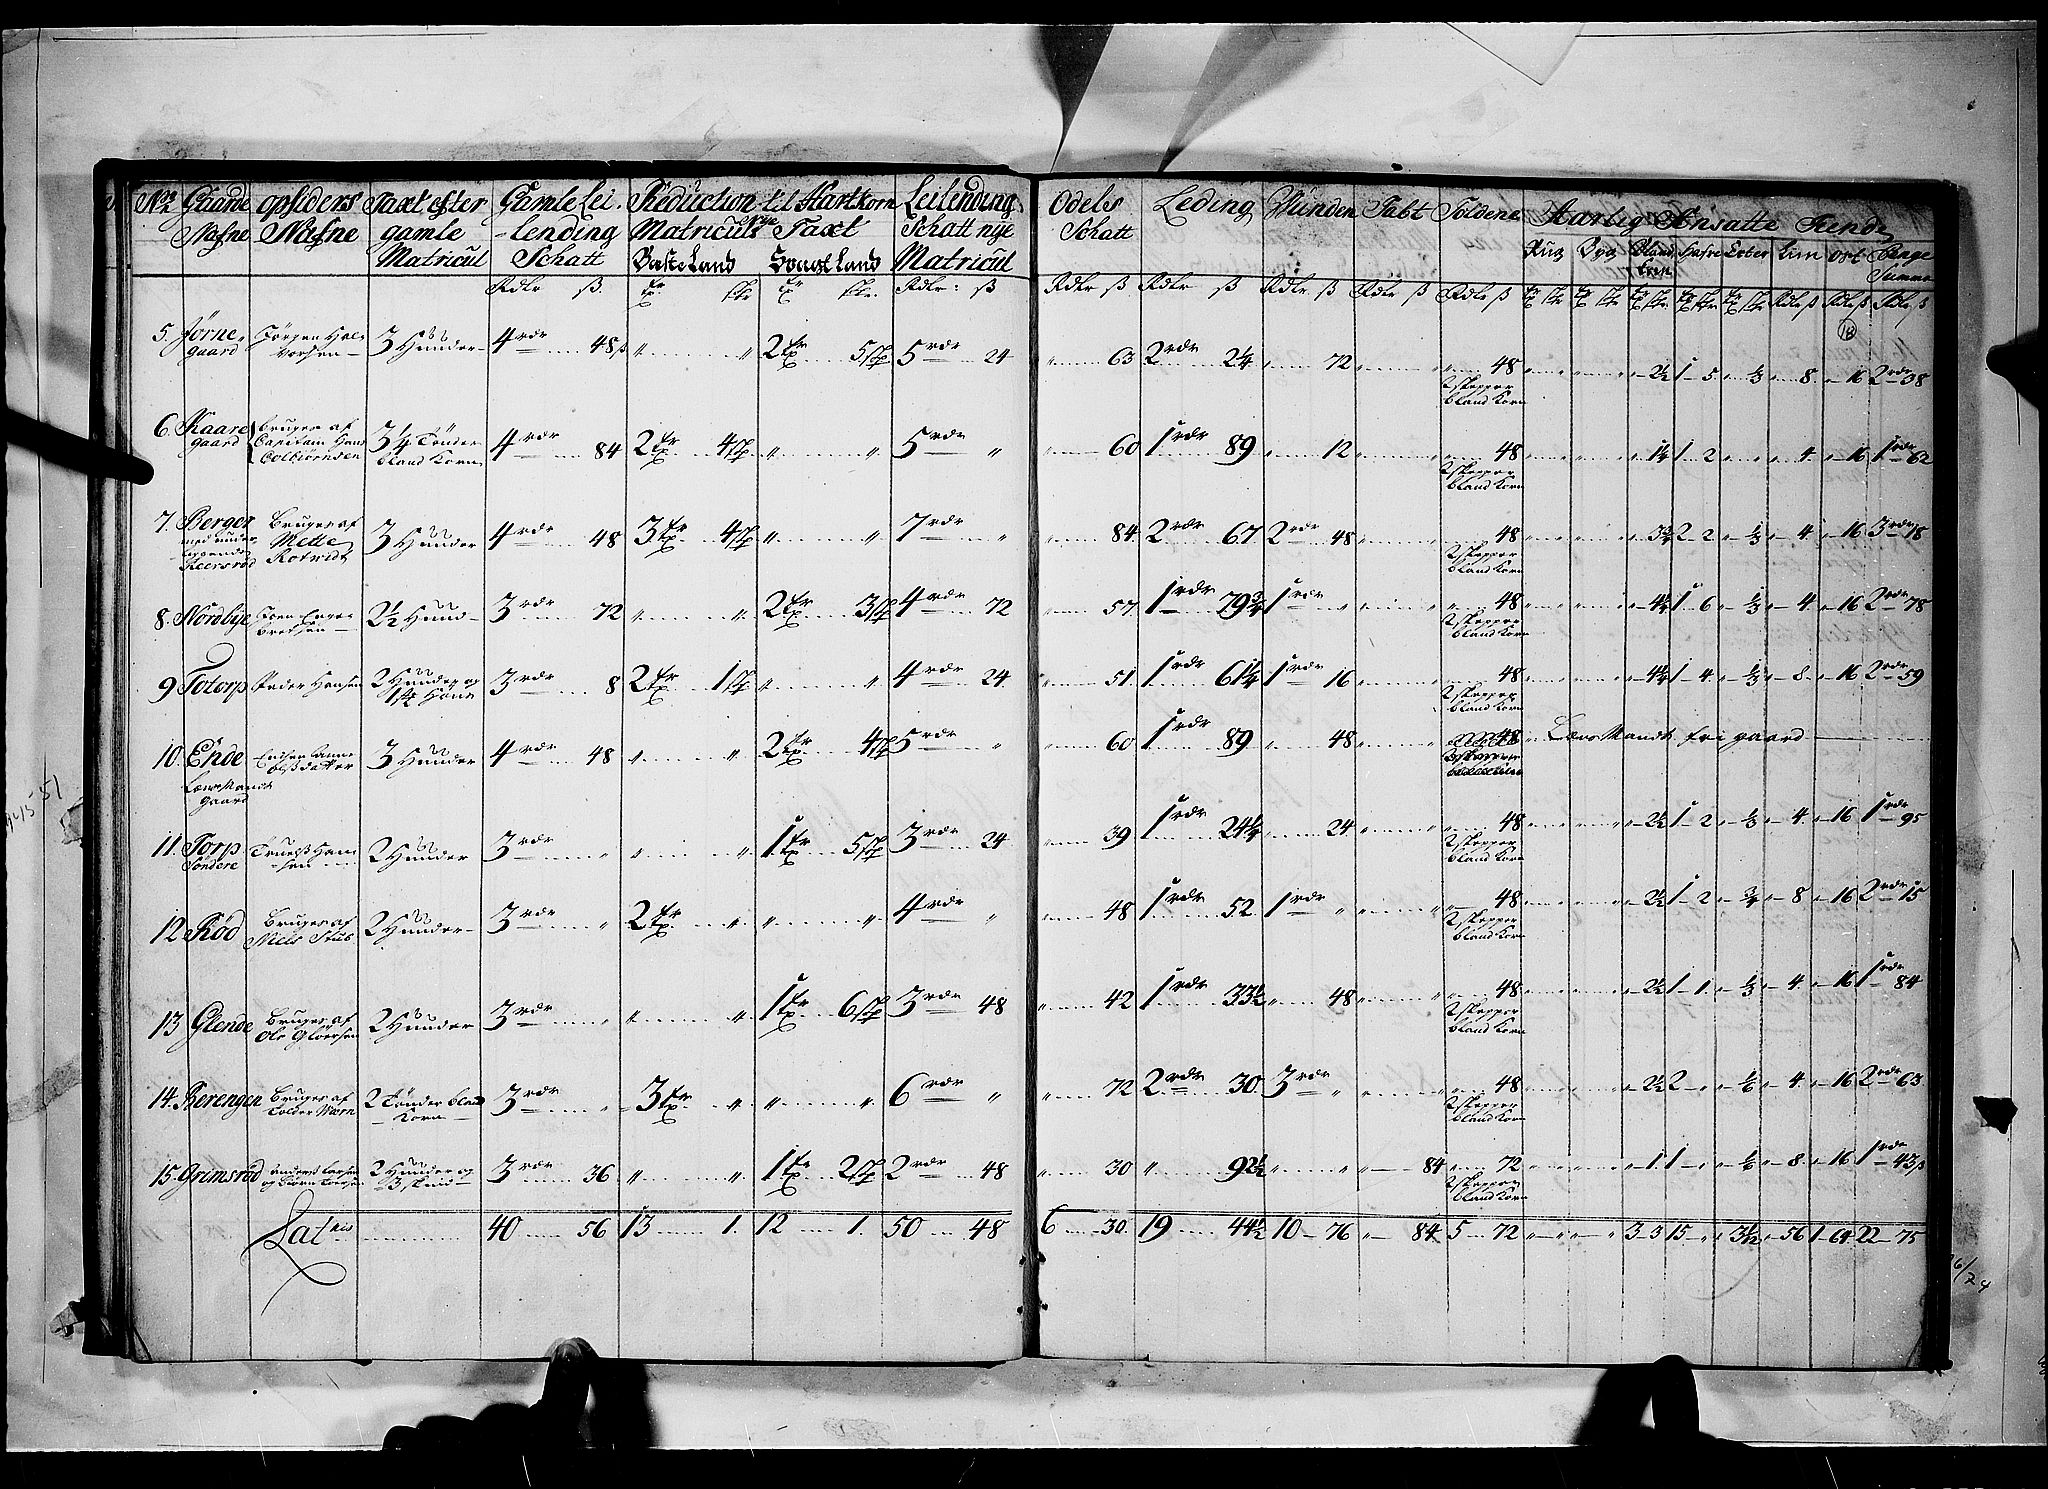 No Gaarde opsiders Taxt efter Gamle Lei- Reduction til Hartkorn Leilending Odels Leding Wiinden Tabt Foldene Aarlig Ansatte Tiende
Nafne Nafne gamle lending Matriculs Nye Taxt Schatt nye Schatt
Matricul Schatt Beste Land Svagt Land Matricul Rug Byg Bland Korn Hafre Erter Lin Ost Penge Summa
Rdlr ß. Rdlr: ß Rdlr ß Rdlr ß Rdlr ß Rdlr ß Rdlr ß
18
5. Jørne- Jørgen Hal- 3 Hunder 4 rdr 48 ß " " 2 tr 5 5 rdr 24 " 63 2 rdr 2¼ " 72 " " 48 2½ 1 5 ⅓ 8 16 2 rdr 38
gaard vorsen 2 skepper
bland Korn
6. Kaare Bruges af 3¼ Tønder 4 rdr 84 2 tr 4 " " 5 rdr " 60 1 rdr 89 " 12 48 1¼ 1 2 4 16 1 rdr 62
gaard Capitain Hans bland Korn 2 skepper
Colbiørnsen bland Korn
7. Berger Bruges af 3 Hunder 4 rdr 48 3 tr 4 " " 7 rdr " 84 2 rdr 67 2 rdr 48 48 3¾ 2 2 ⅓ 4 16 3 rdr 18
med under Mette 2 skepper
liggende Rotwidt bland Korn
8. Nordbye Joen Engen- 2½ Hund 3 rdr 72 " " 2 tr 3 4 rdr 72 57 1 rdr 79¾ 1 rdr " 48 4½ 1 6 ⅓ 4 16 2 rdr 78
bretsen 2 skepper
bland Korn
9 Totorp Peder Hansen 2 Hunder og 3 rdr 8 2 tr 1 " " 4 rdr 24 " 51 1 rdr 61¼ 1 rdr 16 48 4¼ 1 4 ⅓ 8 16 2 rdr 59
2 skepper
bland Korn
10. Ende 3 Hunder 4 rdr 48 " " 2 tr 4 5 rdr " 60 1 rdr 89 " 48 48 Lens Mands fri gaard
Lens Mands
gaard
11. Torp Truels Han- 2 Hunder 3 rdr " " " 1 tr 5 3 rdr 24 39 1 rdr 24¼ 24 48 2½ 1 2 ⅓ 4 16 1 rdr 95
Søndere sen 2 skepper
bland Korn
12 Rød Bruges af 2 Hunder 3 rdr " 2 tr " " " 4 rdr " 48 1 rdr 52 1 rdr " 48 2½ 1 2 ¾ 8 16 2 rdr 15
Niels Stub 2 skepper
bland Korn
13 Glende Bruges af 2 Hunder 3 rdr " " " 1 tr 6 3 rdr 48 " 42 1 rdr 33½ " 48 48 2½ 1 1 ⅓ 4 16 1 rdr 84
Ole Gloersen 2 skepper
bland Korn
14. Berengen Bruges af 2 Tønder bland 3 rdr " 3 tr " " " 6 rdr " 72 2 rdr 30 3 rdr " 48 2½ 2 ⅙ 4 16 2 rdr 63
Tolder Wærn Korn 2 skepper
bland Korn
15. Grimsrød Anders Larsen 2 Hunder og 3 rdr 36 " " 1 tr 2 2 rdr 48 " 30 " 92½ " " 84 72 1 1 ⅙ 8 16 1 rdr 43 ß
3 skind 2 skepper
bland Korn
Lat 40 56 13 1. 12 1. 50 48 6 30. 19 44½ 10 76 " 84 5 72 " " 3 3 15 " 3½ 56 1 64 22 75